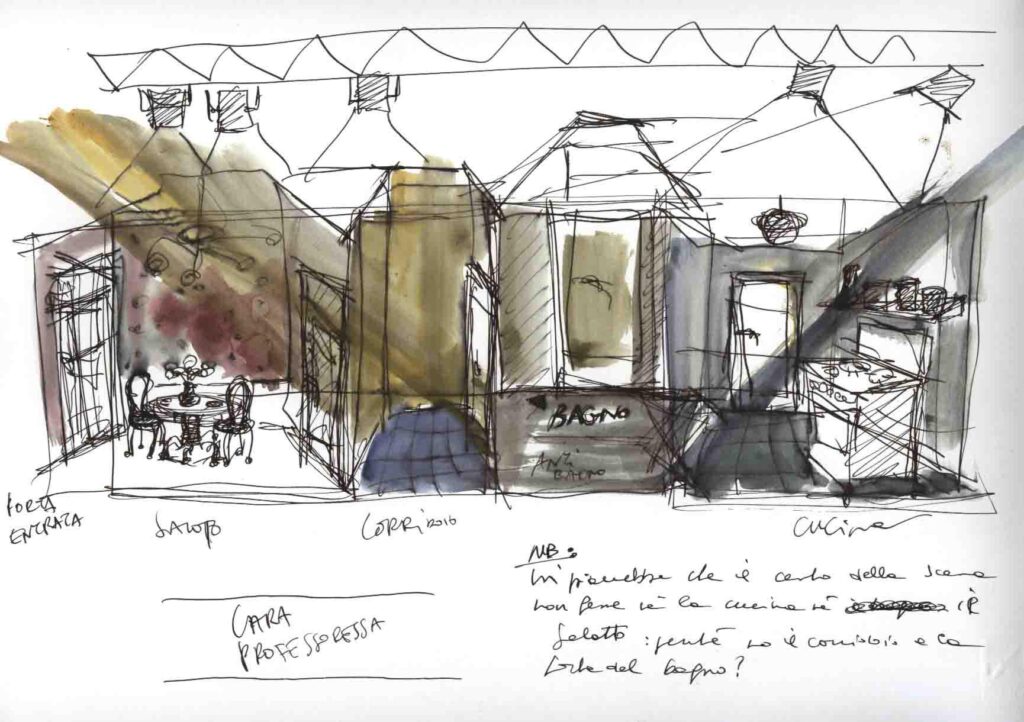 BAGNO
ANTI
BAGNO
PORTA
ENTRATA
SALOTTO
CORRIDOIO
CUCINA
NB:
mi piacerebbe che il centro della scena
non fosse nè la cucina nè il
salotto: perchè no il corridoio e la
porta del bagno?
CARA
PROFESSORESSA